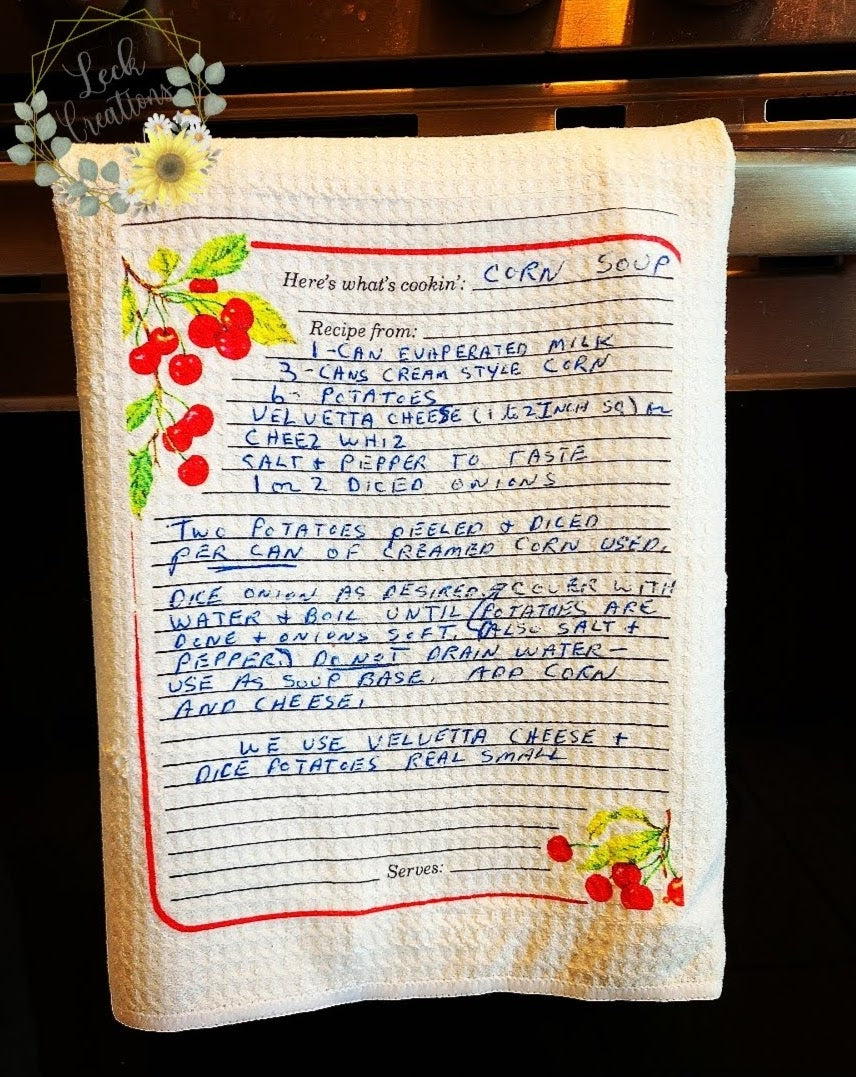 Leck
Creations
Here's what's cookin': CORN SOUP
Recipe from:
1-CAN EVAPERATED MILK
3-CANS CREAM STYLE CORN
6- POTATOES
VELVETTA CHEESE (1 to 2 INCH SQ) or
CHEEZ WHIZ
SALT + PEPPER TO TASTE
1 or 2 DICED ONIONS
TWO POTATOES PEELED + DICED
PER CAN OF CREAMED CORN USED.
DICE ONION AS DESIRED, COVER WITH
WATER + BOIL UNTIL (POTATOES ARE
DONE + ONIONS SOFT. (ALSO SALT +
PEPPER.) DO NOT DRAIN WATER-
USE AS SOUP BASE. ADD CORN
AND CHEESE.
WE USE VELVETTA CHEESE +
DICE POTATOES REAL SMALL
Serves: